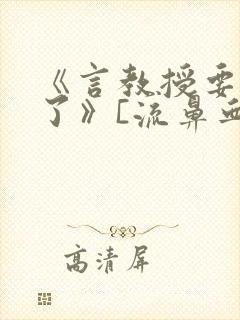 《言教授要
了》[流鼻血
高清屏